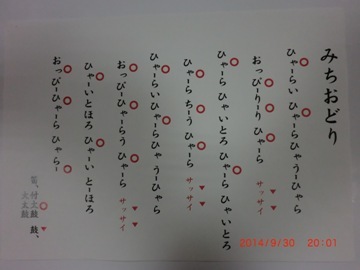 みちおどり
ひゃーらい ひゃーらひゃうーひゃら
おっぴーりーり ひゃーら サッサイ
ひゃーら ひゃいとろ ひゃーら ひゃいとろ
ひゃーら ちーう ひゃーら サッサイ
ひゃーらい ひゃーらひゃ うーひゃら
おっぴーひゃーらう ひゃーら サッサイ
ひゃーいとほろ ひゃーい とーほろ
おっぴーひゃーら ひゃらー
笛、付太鼓 鼓、
大太鼓
2014/9/30 20:01